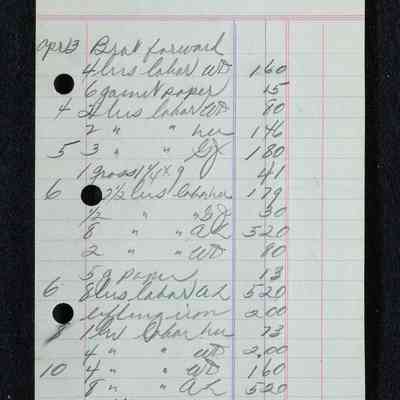 Apr 3 Brot forward
4 hrs labor WD 160
6 garnet paper 15
4 2 hrs labor WD 80
2 " " her 146
5 3 " " GJ 180
1 gross 1 1/4 x 9 41
6 2 1/2 hrs labor her 179
1/2 " " GJ 30
8 " " AL 520
2 " " WD 80
5 g paper 13
6 8 hrs labor AL 520
iron 200
8 1 hr labor her 73
4 " " WD 2.00
10 4 " " WD 160
8 " " AL 520